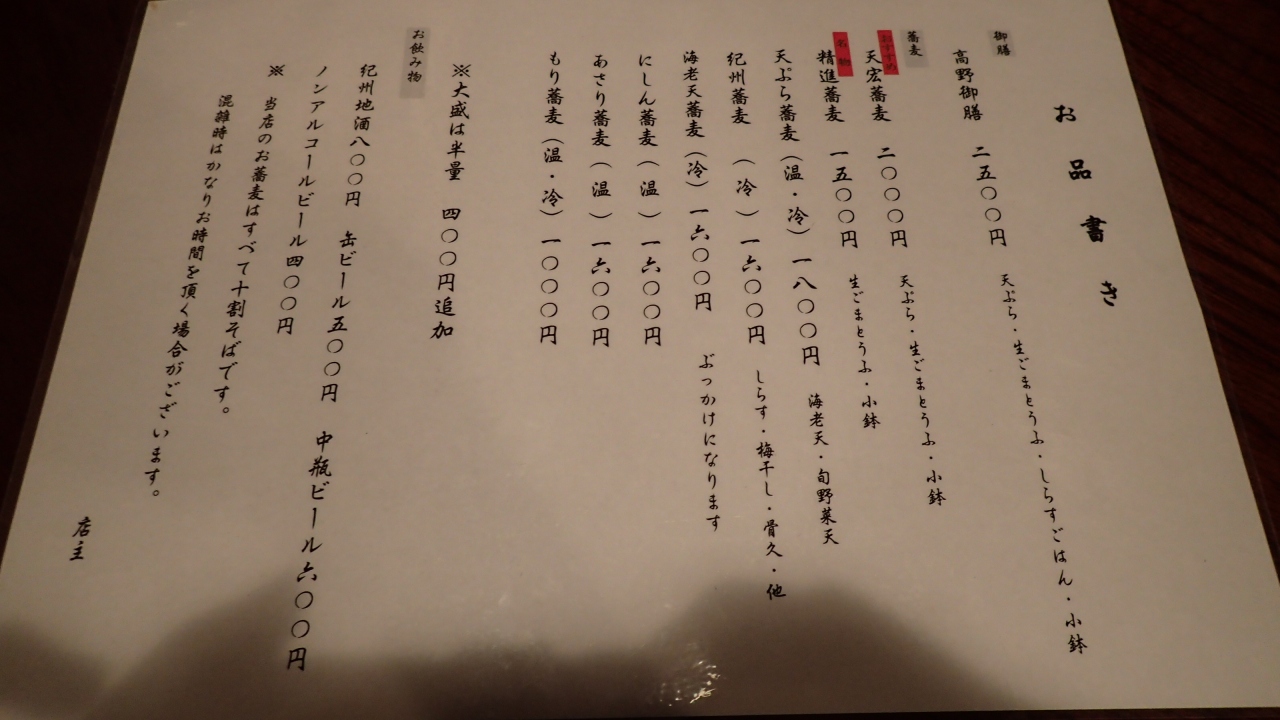 お品書き
御膳
高野御膳 二五〇〇円 天ぷら・生ごまとうふ・しらすごはん・小鉢
蕎麦
おすすめ
天宏蕎麦 二〇〇〇円 天ぷら・生ごまとうふ・小鉢
名物
精進蕎麦 一五〇〇円 生ごまとうふ・小鉢
天ぷら蕎麦(温・冷)一八〇〇円 海老天・旬野菜天
紀州蕎麦 (冷)一六〇〇円 しらす・梅干し・骨久・他
海老天蕎麦(冷)一六〇〇円 ぶっかけになります
にしん蕎麦(温)一六〇〇円
あさり蕎麦(温)一六〇〇円
もり蕎麦(温・冷)一〇〇〇円
※大盛は半量 四〇〇円追加
お飲み物
紀州地酒八〇〇円 缶ビール五〇〇円 中瓶ビール六〇〇円
ノンアルコールビール四〇〇円
※ 当店のお蕎麦はすべて十割そばです。
混雑時はかなりお時間を頂く場合がございます。
店主